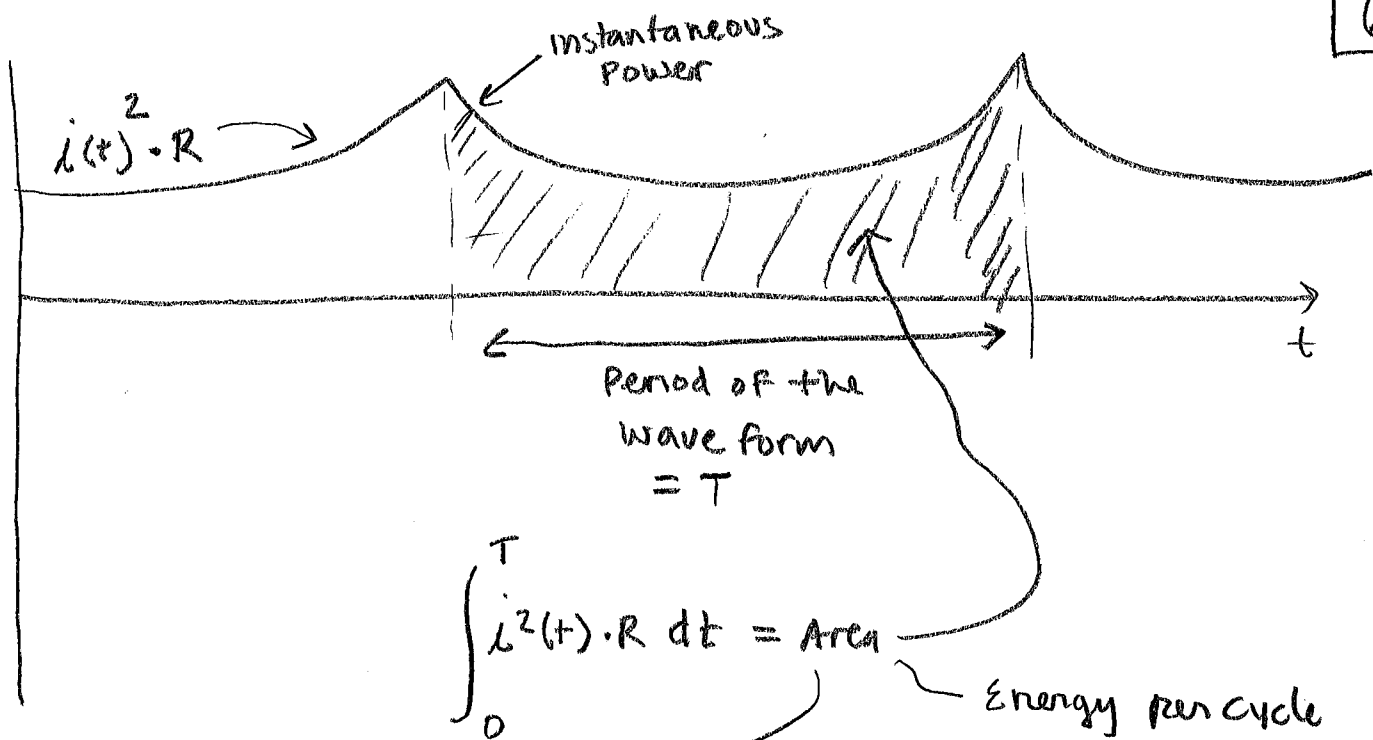 instantaneous
power
i(t)²·R
t
Period of the
wave form
= T
∫₀ᵀ i²(t)·R dt = Area
Energy per cycle